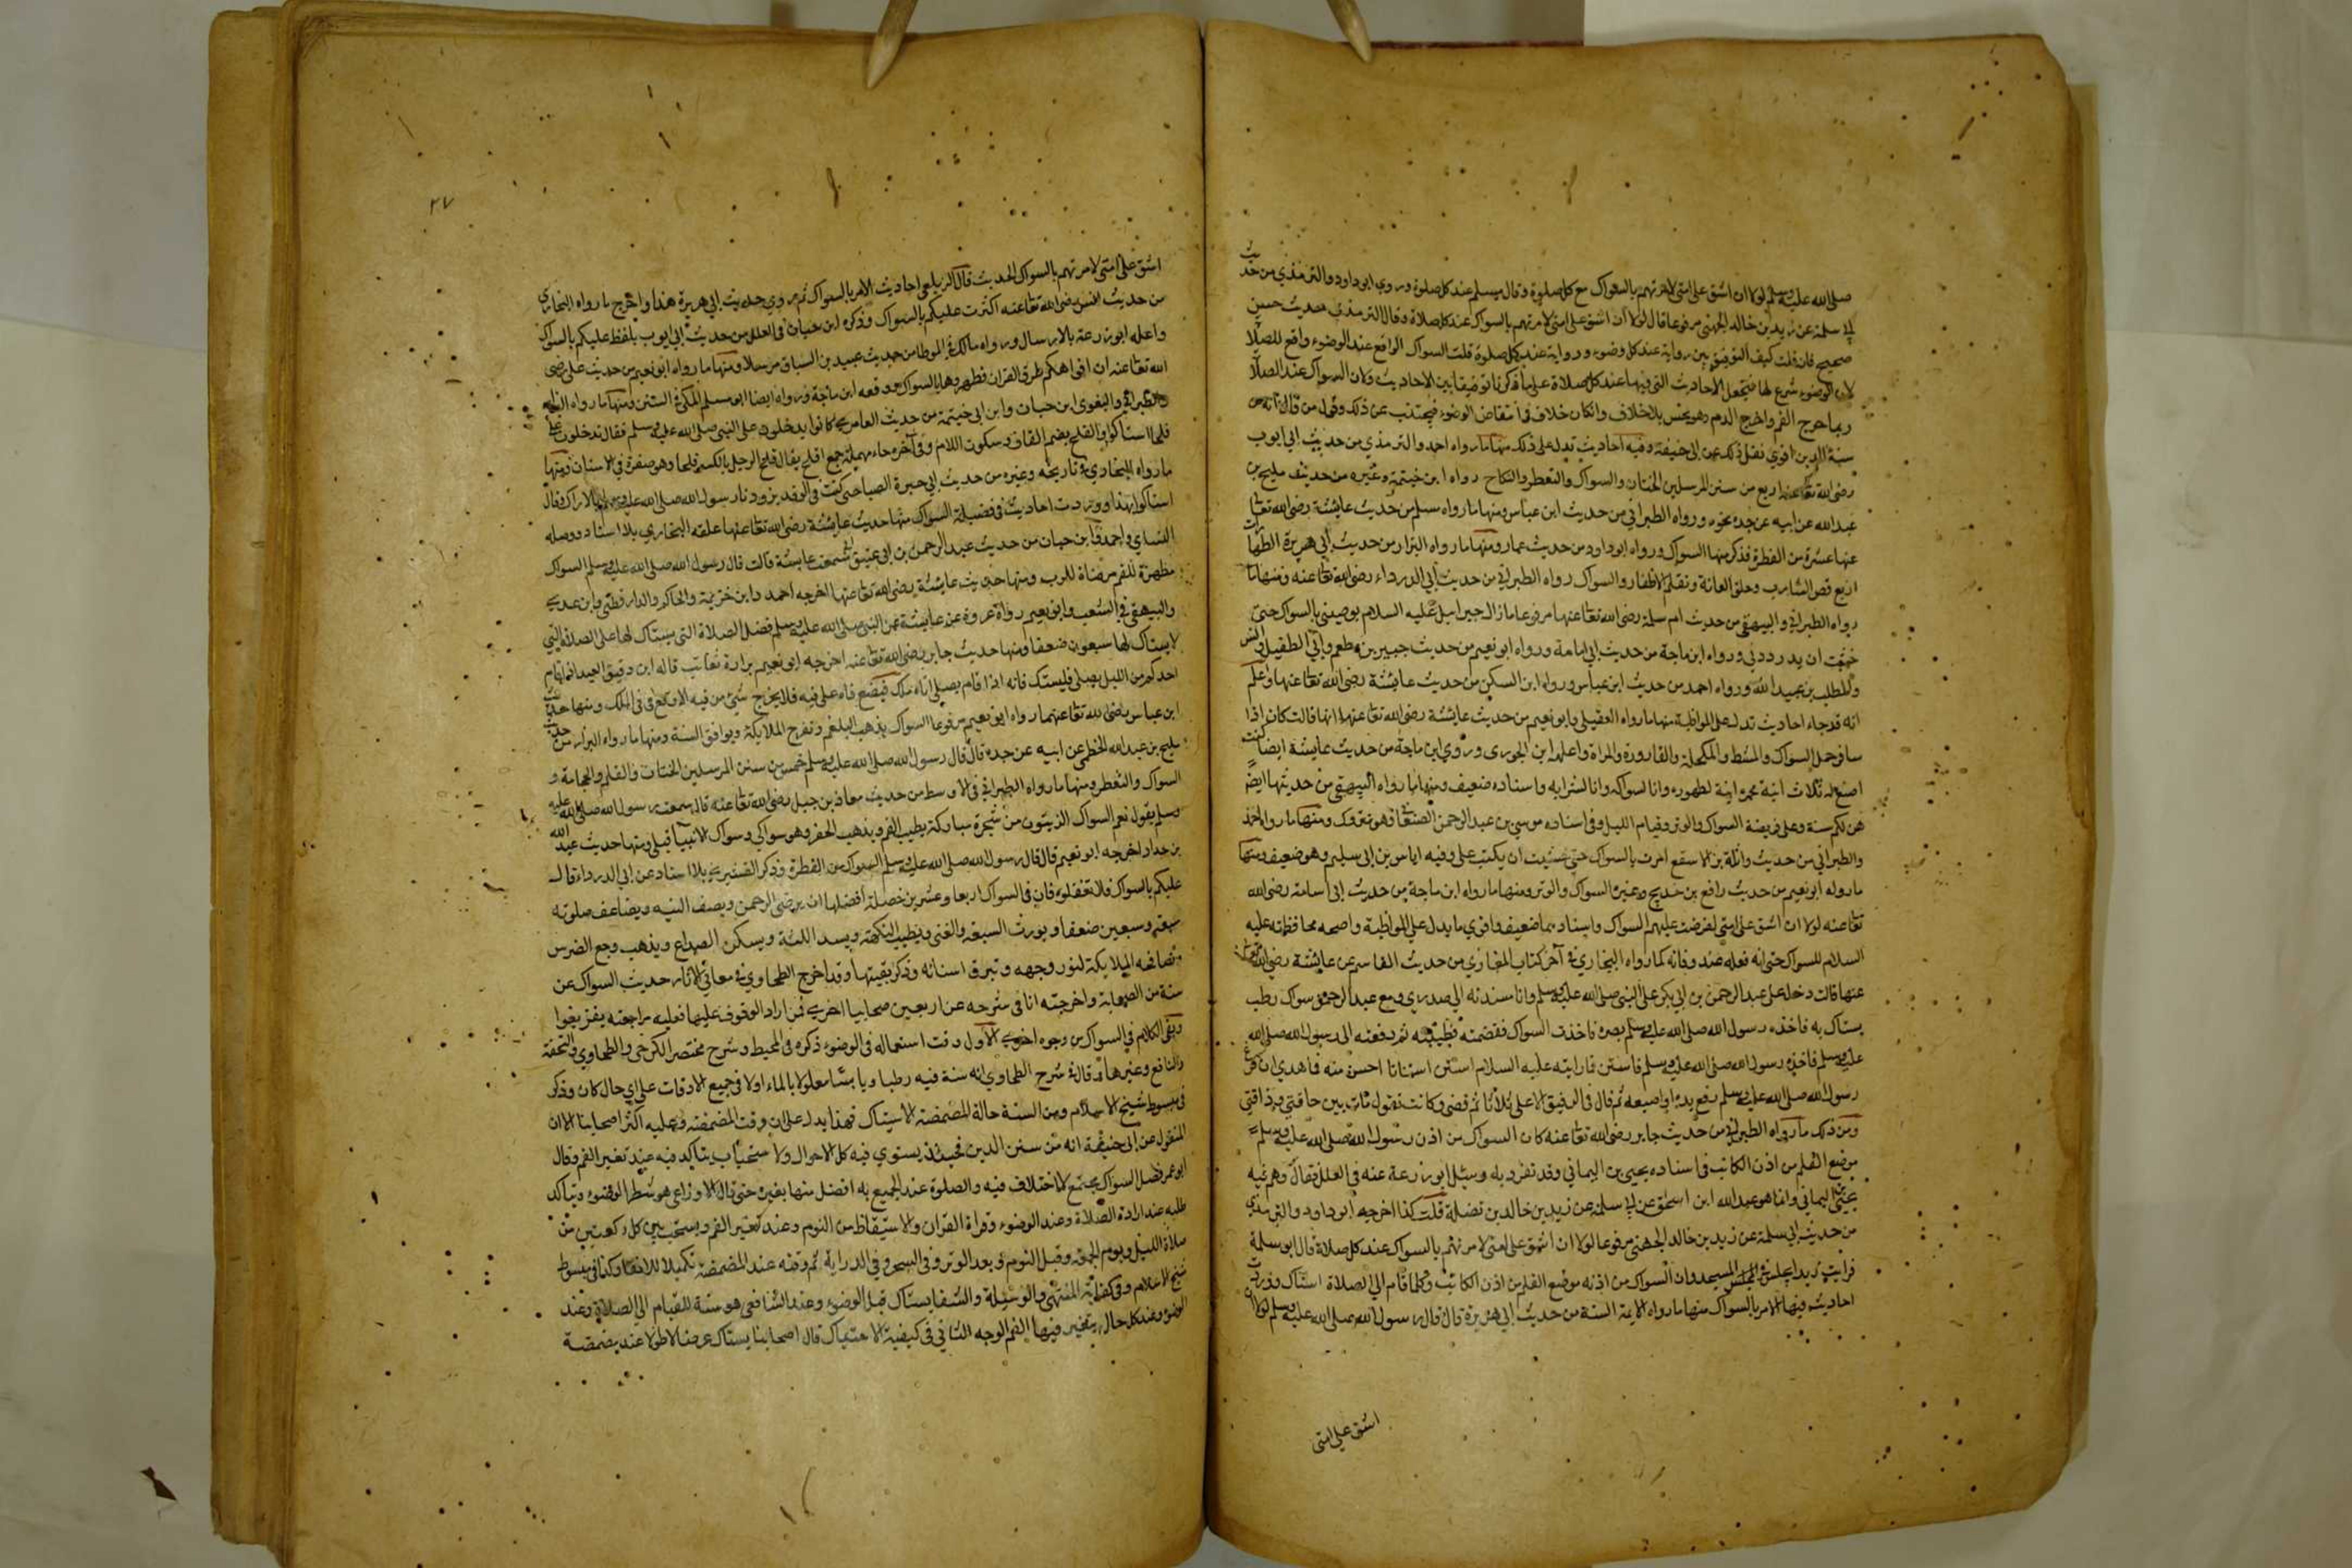 صلى الله عليه وسلم لولا ان اشق على امتى لامرتهم بالسواك مع كل صلوة وقال مسلم عند كل صلوة وروى ابو داود والترمذي من حديث
ابي سلمة عن زيد بن خالد الجهني مرفوعا قال لولا ان اشق على امتى لامرتهم بالسواك عند كل صلاة وقال الترمذي حديث حسن
صحيح فان قلت كيف التوفيق بين رواية عند كل وضوء ورواية عند كل صلوة قلت السواك الواقع عند الوضوء واقع للصلاة
لان الوضوء شرع لها فتجعل الاحاديث التي فيها عند كل صلاة على ما ذكرنا توفيقا بين الاحاديث ولان السواك عند الصلاة
ربما جرح الفم واخرج الدم وهو نجس بلا خلاف وان كان خلاف في انتقاض الوضوء فيجتنب عن ذلك وقول من قال انه من
سنة الدين اقوي نقل ذلك عن ابى حنيفة وفيه احاديث تدل على ذلك منها ما رواه احمد والترمذي من حديث ابي ايوب
رضى الله تعا عنه اربع من سنن المرسلين الختان والسواك والتعطر والنكاح رواه ابن خيثمة وغيره من حديث مليح بن
عبد الله عن ابيه عن جده نحوه ورواه الطبراني من حديث ابن عباس ومنها ما رواه مسلم من حديث عايشة رضى الله تعا
عنها عشرة من الفطرة فذكر منها السواك ورواه ابو داود من حديث عمار ومنها ما رواه البزار من حديث أبي هريرة الطهارات
اربع قص الشارب وحلق العانة وتقليم الاظفار والسواك رواه الطبراني من حديث أبي الدرداء رضى الله تعا عنه ومنها ما
رواه الطبراني والبيهقي من حديث ام سلمة رضى الله تعا عنها مرفوعا ما زال جبرايل عليه السلام يوصيني بالسواك حتى
خفت ان يدردني ورواه ابن ماجة من حديث ابي امامة ورواه ابو نعيم من حديث جبير بن مطعم وابي الطفيل وانس
والمطلب بن عبد الله ورواه احمد من حديث ابن عباس ورواه ابن السكن من حديث عايشة رضى الله تعا عنها واعلم
انه قد جاء احاديث تدل على المواظبة منها ما رواه العقيلي وابو نعيم من حديث عايشة رضى الله تعا عنها انها قالت كان اذا
سافر حمل السواك والمشط والمكحلة والقارورة والمراة واعله ابن الجوزى وروي ابن ماجة من حديث عايشة ايضا كنت
اصنع له ثلاث آنية مخمرة انية لطهوره وانا لسواكه وانا لشرابه واسناده ضعيف ومنها ما رواه البيهقي من حديثها ايضا
هن لكم سنة وعلى فريضة السواك والوتر وقيام الليل وفى اسناده موسى بن عبد الرحمن الصنعاني وهو متروك ومنها ما رواه احمد
والطبراني من حديث واثلة بن الاسقع امرت بالسواك حتى خشيت ان يكتب على وفيه اياس بن ابى سليم وهو ضعيف ومنها
ما رواه ابو نعيم من حديث رافع بن خديج وغيره السواك والوتر ومنها ما رواه ابن ماجة من حديث ابى امامة رضى الله
تعا عنه لولا ان اشق على امتى لفرضت عليهم السواك واسنادهما ضعيف واقوي ما يدل علي المواظبة واصحه محافظته عليه
السلام للسواك حتى انه فعله عند وفاته كما رواه البخاري في آخر كتاب المغازي من حديث القاسم عن عايشة رضى الله تعا
عنها قالت دخل على عبد الرحمن بن ابي بكر على النبى صلى الله عليه وسلم وانا مسندته الى صدري ومع عبد الرحمن سواك رطب
يستاك به فاخذه رسول الله صلى الله عليه وسلم بصره فاخذت السواك فقضمته فطيبته ثم دفعته الى رسول الله صلى الله
عليه وسلم فاخذه رسول الله صلى الله عليه وسلم فاستن فما رايته عليه السلام استن استنانا احسن منه فما عدي ان فرغ
رسول الله صلى الله عليه وسلم رفع يده او اصبعه ثم قال فى الرفيق الاعلى ثلاثا ثم قضى وكانت تقول مات بين حاقنتي وذاقنتي
ومن ذلك ما رواه الطبراني من حديث جابر رضى الله تعا عنه كان السواك من اذن رسول الله صلى الله عليه وسلم
موضع القلم من اذن الكاتب فى اسناده يحيى بن اليماني وقد تفرد به وسئل ابو زرعة عنه في العلل فقال وهم فيه
يحيى اليماني وانما هو عند الله ابن اسحق عن ابي سلمة عن زيد بن خالد من فضله قلت كذا اخرجه ابو داود والترمذي
من حديث ابي سلمة عن زيد بن خالد الجهني مرفوعا لولا ان اشق على امتى لامرتهم بالسواك عند كل صلاة قال ابو سلمة
فرايت زيدا يجلس في المسجد وان السواك من اذنه موضع القلم من اذن الكاتب وكلما قام الى الصلاة استاك ووردت
احاديث فيها الامر بالسواك منها ما رواه الايمة الستة من حديث ابي هريرة قال قال رسول الله صلى الله عليه وسلم لولا ان
اشق علي امتى
٢٧
اشق على امتى لامرتهم بالسواك الحديث قال الزيلعى احاديث الامر بالسواك ثم روي حديث ابي هريرة هذا واخرج ما رواه البخارى
من حديث انس رضى الله تعا عنه اكثرت عليكم بالسواك وذكره ابن حبان فى العلل من حديث ابي ايوب بلفظ عليكم بالسواك
واعله ابو زرعة بالارسال ورواه مالك في الموطا من حديث عبيد بن السباق مرسلا ومنها ما رواه ابو نعيم من حديث على رضى
الله تعا عنه ان افواهكم طرق القران فطهروها بالسواك ووقفه ابن ماجة ورواه ايضا ابو مسلم المكى في السنن ومنها ما رواه
والطبراني والبغوى ابن حبان وابن ابى خيثمة من حديث العباس كانوا يدخلون على النبى صلى الله عليه وسلم فقال تدخلون على
قلحا استاكوا والقلح بضم القاف وسكون اللام وفى آخره حاء مهملة جمع اقلح يقال قلح الرجل بالكسر قلحا وهو صفرة في الاسنان ومنها
ما رواه البخاري في تاريخه وغيره من حديث ابي خيرة الصباحى كنت فى الوفد فزودنا رسول الله صلى الله عليه وسلم بالاراك وقال
استاكوا بهذا ووردت احاديث فى فضيلة السواك منها حديث عايشة رضى الله تعا عنها علقه البخاري بلا اسناد ووصله
النساي واحمد وابن حبان من حديث عبد الرحمن بن ابى عتيق سمعت عايشة قالت قال رسول الله صلى الله عليه وسلم السواك
مطهرة للفم مرضاة للرب ومنها حديث عايشة رضى الله تعا عنها اخرجه احمد وابن خزيمة والحاكم والدارقطني وابن عدي
والبيهقي في الشعب وابو نعيم رواة عروة عن عايشة عن النبى صلى الله عليه وسلم فضل الصلاة التى يستاك لها على الصلاة التي
لا يستاك لها سبعون ضعفا ومنها حديث جابر رضى الله تعا عنه اخرجه ابو نعيم قاله ابن دقيق العيد اذا قام
احدكم من الليل يصلى فليستك فانه اذا قام يصلى اتاه ملك فيضع فاه على فيه فلا يخرج شيء من فيه الا وقع فى فى الملك ومنها حديث
ابن عباس رضى الله تعا عنهما رواه ابو نعيم مرفوعا السواك يذهب البلغم وتفرح الملايكة ويوافق السنة ومنها ما رواه البزار من حديث
مليح بن عبد الله الخطمى عن ابيه عن جده قال قال رسول الله صلى الله عليه وسلم خمس من سنن المرسلين الختان والقلم والحجامة و
السواك والتعطر ومنها ما رواه الطبراني فى الاوسط من حديث معاذ بن جبل رضى الله تعا عنه قال سمعت رسول الله صلى الله عليه
وسلم يقول نعم السواك الزيتون من شجرة مباركة يطيب الفم ويذهب الحفر وهو سواكي وسواك الانبيآ قبلى ومنها حديث عبد الله
بن جدار اخرجه ابو نعيم قال قال رسول الله صلى الله عليه وسلم السواك من الفطرة وذكر القشيري بلا اسناد عن ابي الدرداء قال
عليكم بالسواك فلا تغفلوه فان فى السواك اربعا وعشرين خصلة افضلها ان يرضى الرحمن ويصف البنيه ويضاعف صلوته
سبعة وسبعين ضعفا ويورث السعة والغنى ويطيب النكهة ويشد اللثة ويسكن الصداع ويذهب وجع الضرس
وتصافحه الملايكة لنور وجهه وتبرق اسنانه وذكر بقيتها وقد اخرج الطحاوي في معاني الآثار حديث السواك عن
ستة من الصحابة واخرجته انا فى شرحه عن اربعين صحابيا اخرى فمن اراد الوقوف عليها فعليه مراجعته
وبقى الكلام في السواك من وجوه اخرى الاول وقت استعماله فى الوضوء ذكره فى المحيط وشرح مختصر الكرخى والطحاوي والتحفة
والنافع وغيرها وقال في شرح الطحاوي انه سنة فيه رطبا ويابسا مبلولا بالماء اولا فى جميع الاوقات على اي حال كان وذكر
فى مبسوط شيخ الاسلام ومن السنة حالة المضمضة الاستياك فهذا يدل على ان وقت المضمضة وعليه اكثر اصحابنا الا ان
المنقول عن ابى حنيفة انه من سنن الدين فحينئذ يستوي فيه كل الاحوال ولا استحباب يتاكد فيه عند تغير الفم وقال
ابو عمر فضل السواك مجتمع لا اختلاف فيه والصلوة عند الجميع به افضل منها بغيره حتى قال الاوزاعى هو شطر الوضوء ويتاكد
طلبه عند ارادة الصلاة وعند الوضوء وقراة القران والاستيقاظ من النوم وعند تغير الفم ويستحب بين كل ركعتين من
صلاة الليل ويوم الجمعة وقبل النوم وبعد الوتر وفى السحر وفى الدراية ثم وقته عند المضمضة تكميلا للانقا وكذا فى مبسوط
شيخ الاسلام وفى كفاية المنتهى والوسيلة والشفا يستاك قبل الوضوء وعند الشافعى هو سنة للقيام الى الصلاة وعند
الوضوء وعند كل حال يتغير فيها الفم الوجه الثاني فى كيفية الاستياك قال اصحابنا يستاك عرضا لا طولا عند مضمضة